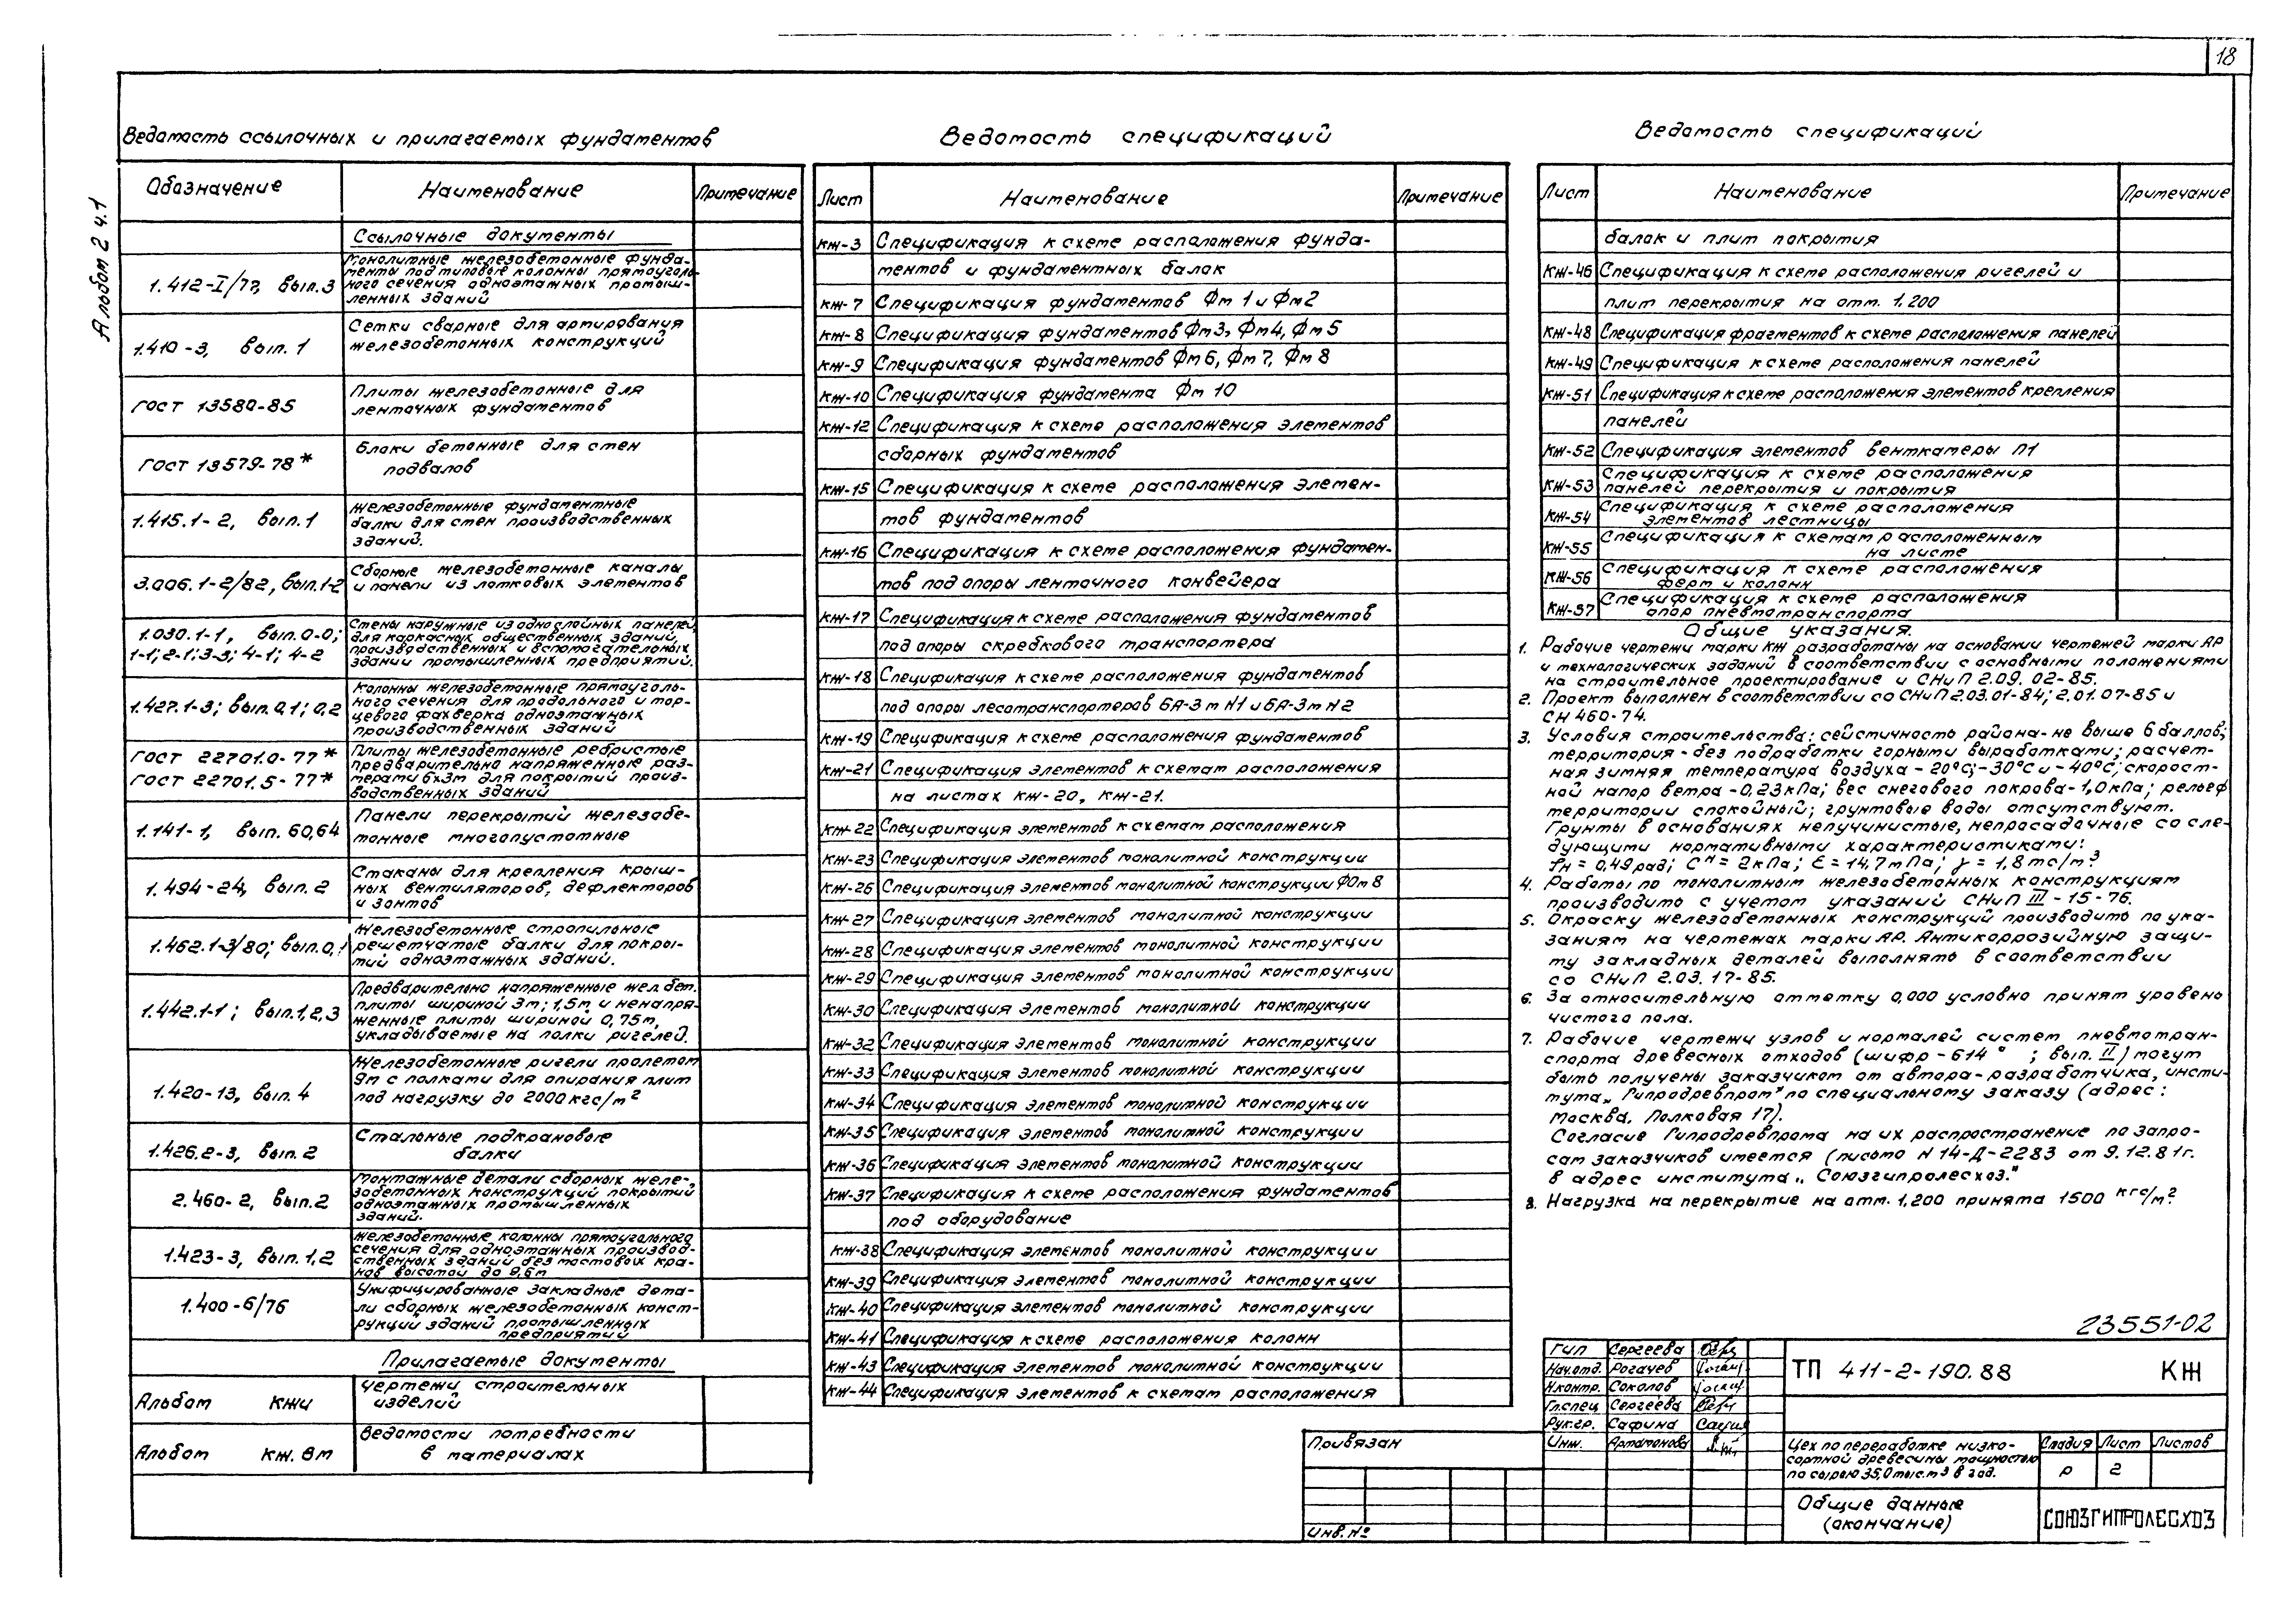 18
Альбом 2 ч.1
Ведомость ссылочных и прилагаемых фундаментов
Обозначение Наименование Примечание
Ссылочные документы
1.412-I/77, вып.3 Монолитные железобетонные фунда-
менты под типовые колонны прямоуголь-
ного сечения одноэтажных промыш-
ленных зданий
1.410-3, вып. 1 Сетки сварные для армирования
железобетонных конструкций
ГОСТ 13580-85 Плиты железобетонные для
ленточных фундаментов
ГОСТ 13579-78* Блоки бетонные для стен
подвалов
1.415.1-2, вып.1 Железобетонные фундаментные
балки для стен производственных
зданий.
3.006.1-2/82, вып.1-2 Сборные железобетонные каналы
и панели из лотковых элементов
1.030.1-1, вып. 0-0;
1-1; 2-1; 3-3; 4-1; 4-2
Стены наружные из однослойных панелей
для каркасных общественных зданий,
производственных и вспомогательных
зданий промышленных предприятий.
1.427.1-3; вып.0,1; 0,2 Колонны железобетонные прямоуголь-
ного сечения для продольного и тор-
цевого фахверка одноэтажных
производственных зданий
ГОСТ 22701.0-77*
ГОСТ 22701.5-77*
Плиты железобетонные ребристые
предварительно напряженные раз-
мерами 6х3м для покрытий произ-
водственных зданий
1.141-1, вып. 60,64 Панели перекрытий железобе-
тонные многопустотные
1.494-24, вып. 2 Стаканы для крепления крыш-
ных вентиляторов, дефлекторов
и зонтов
1.462.1-3/80; вып.0,1 Железобетонные стропильные
решетчатые балки для покры-
тий одноэтажных зданий.
1.442.1-1; вып.1,2,3 Предварительно напряженные жел.бет.
плиты шириной 3м; 1,5м и ненапря-
женные плиты шириной 0,75м,
укладываемые на полки ригелей.
1.420-13, вып. 4 Железобетонные ригели пролетом
9м с полками для опирания плит
под нагрузку до 2000 кгс/м²
1.426.2-3, вып. 2 Стальные подкрановые
балки
2.460-2, вып.2 Монтажные детали сборных желе-
зобетонных конструкций покрытий
одноэтажных промышленных
зданий.
1.423-3, вып. 1,2 Железобетонные колонны прямоугольного
сечения для одноэтажных производ-
ственных зданий без мостовых кра-
нов высотой до 9,6м
1.400-6/76 Унифицированные закладные дета-
ли сборных железобетонных конст-
рукций зданий промышленных
предприятий
Прилагаемые документы
Альбом КЖИ Чертежи строительных
изделий
Альбом КЖ. Вм Ведомости потребности
в материалах
Ведомость спецификаций
Лист Наименование Примечание
КЖ-3 Спецификация к схеме расположения фунда-
ментов и фундаментных балок
КЖ-7 Спецификация фундаментов Фм 1 и Фм2
КЖ-8 Спецификация фундаментов Фм3, Фм4, Фм5
КЖ-9 Спецификация фундаментов Фм6, Фм7, Фм 8
КЖ-10 Спецификация фундамента Фм 10
КЖ-12 Спецификация к схеме расположения элементов
сборных фундаментов
КЖ-15 Спецификация к схеме расположения элемен-
тов фундаментов
КЖ-16 Спецификация к схеме расположения фундамен-
тов под опоры ленточного конвейера
КЖ-17 Спецификация к схеме расположения фундаментов
под опоры скребкового транспортера
КЖ-18 Спецификация к схеме расположения фундаментов
под опоры лесотранспортеров БА-3м N1 и БА-3м N2
КЖ-19 Спецификация к схеме расположения фундаментов
КЖ-21 Спецификация элементов к схемам расположения
на листах КЖ-20, КЖ-21.
КЖ-22 Спецификация элементов к схемам расположения
КЖ-23 Спецификация элементов монолитной конструкции
КЖ-26 Спецификация элементов монолитной конструкции ФОм 8
КЖ-27 Спецификация элементов монолитной конструкции
КЖ-28 Спецификация элементов монолитной конструкции
КЖ-29 Спецификация элементов монолитной конструкции
КЖ-30 Спецификация элементов монолитной конструкции
КЖ-32 Спецификация элементов монолитной конструкции
КЖ-33 Спецификация элементов монолитной конструкции
КЖ-34 Спецификация элементов монолитной конструкции
КЖ-35 Спецификация элементов монолитной конструкции
КЖ-36 Спецификация элементов монолитной конструкции
КЖ-37 Спецификация к схеме расположения фундаментов
под оборудование
КЖ-38 Спецификация элементов монолитной конструкции
КЖ-39 Спецификация элементов монолитной конструкции
КЖ-40 Спецификация элементов монолитной конструкции
КЖ-41 Спецификация к схеме расположения колонн
КЖ-43 Спецификация элементов монолитной конструкции
КЖ-44 Спецификация элементов к схемам расположения
Ведомость спецификаций
Лист Наименование Примечание
балок и плит покрытия
КЖ-46 Спецификация к схеме расположения ригелей и
плит перекрытия на отм. 1.200
КЖ-48 Спецификация фрагментов к схеме расположения панелей
КЖ-49 Спецификация к схеме расположения панелей
КЖ-51 Спецификация к схеме расположения элементов крепления
панелей
КЖ-52 Спецификация элементов венткамеры П1
КЖ-53 Спецификация к схеме расположения
панелей перекрытия и покрытия
КЖ-54 Спецификация к схеме расположения
элементов лестницы
КЖ-55 Спецификация к схемам расположенным
на листе
КЖ-56 Спецификация к схеме расположения
ферм и колонн
КЖ-57 Спецификация к схеме расположения
опор пневмотранспорта
Общие указания.
1. Рабочие чертежи марки КЖ разработаны на основании чертежей марки АР
и технологических заданий в соответствии с основными положениями
на строительное проектирование и СНиП 2.09. 02-85.
2. Проект выполнен в соответствии со СНиП 2.03.01-84; 2.01.07-85 и
СН 460-74.
3. Условия строительства: сейсмичность района-не выше 6 баллов;
территория-без подработки горными выработками; расчет-
ная зимняя температура воздуха -20°С; -30°С и -40°С; скорост-
ной напор ветра -0,23кПа; вес снегового покрова-1,0кПа; рельеф
территории спокойный; грунтовые воды отсутствуют.
Грунты в основаниях непучинистые, непросадочные со сле-
дующими нормативными характеристиками:
φн = 0,49 рад; Сн = 2кПа; Е = 14,7мПа; γ = 1,8 тс/м³
4. Работы по монолитным железобетонных конструкциям
производить с учетом указаний СНиП III-15-76.
5. Окраску железобетонных конструкций производить по ука-
заниям на чертежах марки АР. Антикоррозийную защи-
ту закладных деталей выполнять в соответствии
со СНиП 2.03. 17-85.
6. За относительную отметку 0,000 условно принят уровень
чистого пола.
7. Рабочие чертежи узлов и нормалей систем пневмотран-
спорта древесных отходов (шифр-614 ; вып. II) могут
быть получены заказчиком от автора-разработчика, инсти-
тута „Гипродревпром" по специальному заказу (адрес:
Москва, Полковая 17).
Согласие Гипродревпрома на их распространение по запро-
сам заказчиков имеется (письмо N 14-Д-2283 от 9.12.81г.
в адрес института „Союзгипролесхоз."
8. Нагрузка на перекрытие на отм. 1,200 принята 1500 кгс/м²
23551-02
ГИП Сергеева
Нач.отд. Рогачев
Н.контр. Соколов
Гл.спец Сергеева
Рук.гр. Сафина
Инж. Артамонова
ТП 411-2-190.88 КЖ
Привязан
Инв. №
Цех по переработке низко-
сортной древесины мощностью
по сырью 35,0 тыс.м³ в год.
Стадия Лист Листов
Р 2
Общие данные
(окончание)
СОЮЗГИПРОЛЕСХОЗ